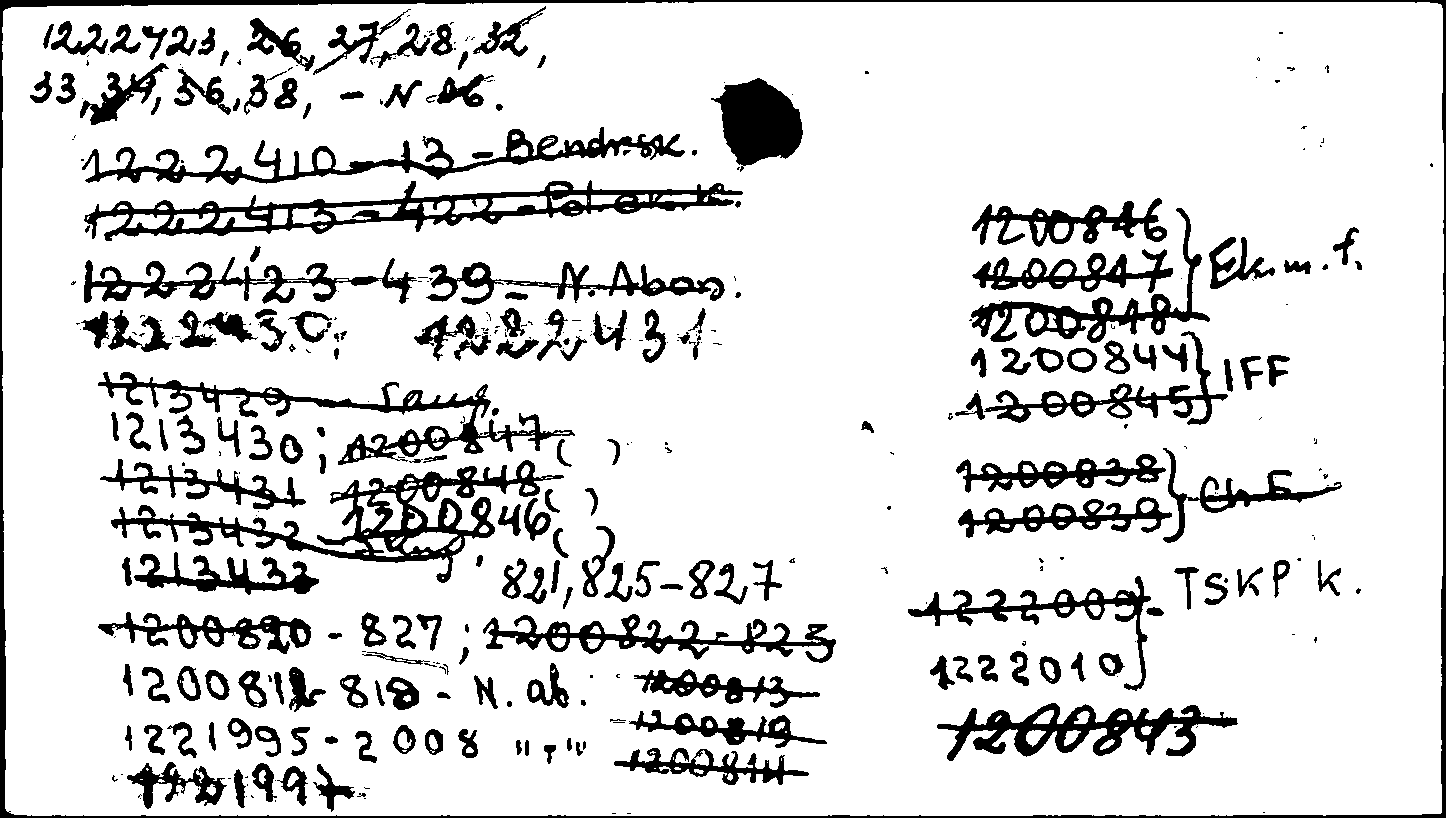 1222423, 26, 27, 28, 32,
33, 34, 36, 38, - N Ab.
1222410 - 13 - Bendrsk.
1222413 - 422 -
1222423 - 439 - N. Abon.
1222430, 1222431
1213429 -
1213430; 1200847 ( )
1213431 1200848 ( )
1213432 1200846 ( )
1213433 821, 825-827
1200820 - 827; 1200822-823
1200812-818 - N. ab. 1200813
1221995-2008 " - " 1200819
1221997 1200814
1200846
1200847 Ek.m.f.
1200848
1200844 IFF
1200845
1200838 Ch.F.
1200839
1222009 - TSKP K.
1222010
1200843